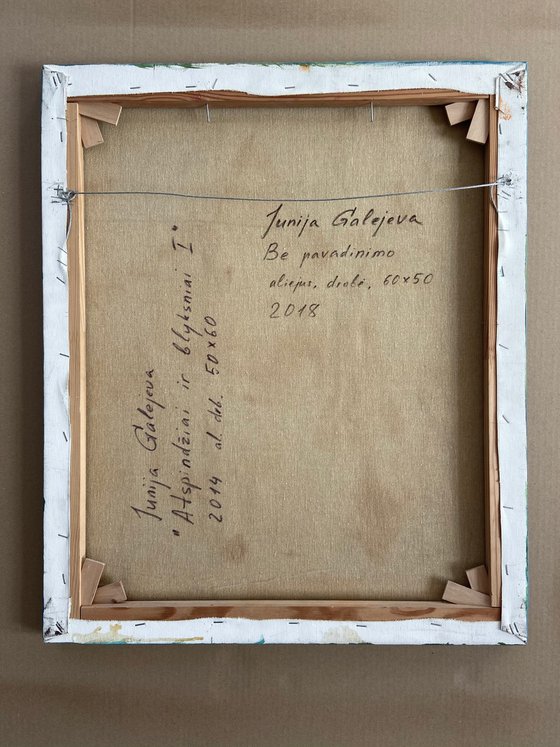 Junija Galejeva
Be pavadinimo
aliejus, drobė, 60x50
2018
Junija Galejeva
"Atspindžiai ir blyksniai I"
2014 al. drb. 50x60